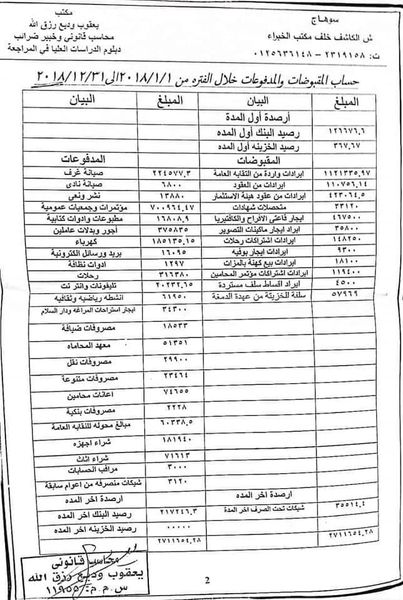 سوهاج
ش الكاشف خلف مكتب الخبراء
ت: ٢٣١٩١٥٨ - ٠١٢٥٦٣٦١٤٨
مكتب
يعقوب وديع رزق الله
محاسب قانوني وخبير ضرائب
دبلوم الدراسات العليا في المراجعة
حساب المقبوضات والمدفوعات خلال الفتره من ٢٠١٨/١/١ الى ٢٠١٨/١٢/٣١
المبلغ البيان المبلغ البيان
أرصدة أول المدة
١٢٦٦٧٦,٦ رصيد البنك أول المده
٣٦٧,٦٧ رصيد الخزينه أول المده
المقبوضات المدفوعات
١١٢١٣٣٥,٩٧ ايرادات واردة من النقابه العامة ٢٢٤٥٧٧,٣ صيانة غرف
١١٠٧٥٦,١٤ ايرادات من العقود ٦٨٠٠ صيانة نادى
٤٢٣٠٦٤,٥ ايرادات من عقود هيئة الاستثمار ١٣٨٨٠ نشر ونعى
٣٣١٢٠ متحصلات شهادات ٧٠٠٩٦٤,٤٧ مؤتمرات وجمعيات عمومية
٤٦٧٥٠٠ ايجار قاعتى الافراح والكافتيريا ١٦٨٠٨,٩ مطبوعات وادوات كتابية
٣٥٨٠٠ ايراد ايجار ماكينات التصوير ٣٧٥٨٣٥ أجور وبدلات عاملين
١٤٨٢٥٠ ايراد اشتراكات رحلات ١٨٥١٣٥,١٥ كهرباء
٩٣٠٠ ايراد ايجار بوفيه ١٦٠٩٥ بريد ورسائل الكترونية
١٨١٠٠ ايرادات بيع كهنة بالمزات ١٢٩٧ ادوات نظافة
١١٩٤٠٠ ايرادات اشتراكات مؤتمر المحامين ٣١٦٣٨٠ رحلات
٤٥٠٠ ايراد اقساط سلف مستردة ٢٠٢٣٢,٦٥ تليفونات وانتر نت
٥٧٩٦٩ سلفة للخزينة من عهدة الدمغة ٦١٩٥٠ انشطه رياضيه وثقافيه
٣٤٣٠٠ ايجار استراحات المراغه ودار السلام
١٨٥٣٣ مصروفات ضيافة
٥١٣٥١ معهد المحاماه
٢٩٩٠٠ مصروفات نقل
٢٣٤٦٤ مصروفات متنوعة
٧٤٦٥٥ اعانات محامين
٢٢٢٨ مصروفات بنكية
٦٠٣٣٨,٥ مبالغ محوله للنقابه العامة
١٨١٩٤٠ شراء اجهزه
٧١٦١٣ شراء اثاث
٣٠٠٠ مراقب الحسابات
٣١٢٠ شيكات منصرفه من اعوام سابقة
أرصدة اخر المده أرصدة اخر المده
٣٥٥١٤,٤ شيكات تحت الصرف اخر المدة ٢١٧٢٤٦,٣ رصيد البنك اخر المده
٠٠٠٠٠ رصيد الخزينه اخر المده
٢٧١١٦٥٤,٢٨ ٢٧١١٦٥٤,٢٨
محاسب قانونى
يعقوب وديع رزق الله
س.م.م: ١١٩٥٥
2